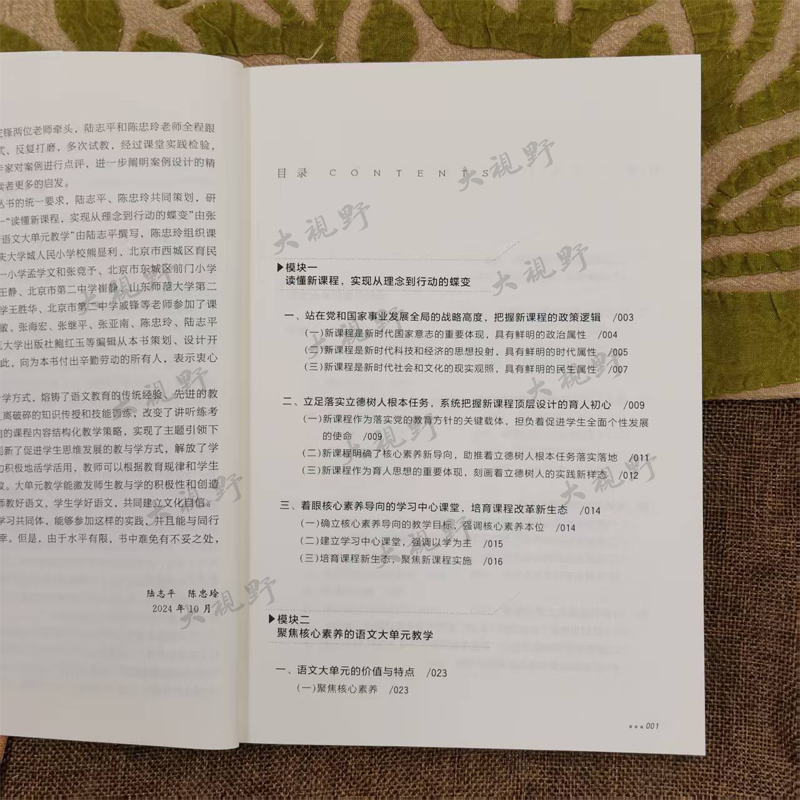 锋两位老师牵头，陆志平和陈忠玲老师全程跟
、反复打磨，多次试教，经过课堂实践检验，
家对案例进行点评，进一步阐明案例设计的精
者更多的启发。
丛书的统一要求，陆志平、陈忠玲共同策划，研
“读懂新课程，实现从理念到行动的蝶变”由张
语文大单元教学”由陆志平撰写，陈忠玲组织课
大学城人民小学校熊昱利、北京市西城区育民
一小学孟学文和张竞予、北京市东城区前门小学
王静、北京市第二中学崔静、山东师范大学第二
王胜华、北京市第二中学戚锋等老师参加了课
敏、张海宏、张继平、张亚南、陈忠玲、陆志平
大学出版社鲍红玉等编辑从本书策划、设计开
此，向为本书付出辛勤劳动的所有人，表示衷心
学方式，熔铸了语文教育的传统经验、先进的教
离破碎的知识传授和技能训练，改变了讲听练考
的课程内容结构化教学策略，实现了主题引领下
新了促进学生思维发展的教与学方式，解放了学
力积极地活学活用，教师可以根据教育规律和学生
。大单元教学能激发师生教与学的积极性和创造
师教好语文，学生学好语文，共同建立文化自信。
学习共同体，能够参加这样的实践，并且能与同行
幸。但是，由于水平有限，书中难免有不妥之处，
陆志平 陈忠玲
2024年10月
目录 CONTENTS
模块一
读懂新课程，实现从理念到行动的蝶变
一、站在党和国家事业发展全局的战略高度，把握新课程的政策逻辑 /003
(一)新课程是新时代国家意志的重要体现，具有鲜明的政治属性 /004
(二)新课程是新时代科技和经济的思想投射，具有鲜明的时代属性 /005
(三)新课程是新时代社会和文化的现实观照，具有鲜明的民生属性 /007
二、立足落实立德树人根本任务，系统把握新课程顶层设计的育人初心 /009
(一)新课程作为落实党的教育方针的关键载体，担负着促进学生全面个性发展
的使命 /009
(二)新课程明确了核心素养新导向，助推着立德树人根本任务落实落地 /011
(三)新课程作为育人思想的重要体现，刻画着立德树人的实践新样态 /012
三、着眼核心素养导向的学习中心课堂，培育课程改革新生态 /014
(一)确立核心素养导向的教学目标，强调核心素养本位 /014
(二)建立学习中心课堂，强调以学为主 /015
(三)培育课程新生态，聚焦新课程实施 /016
模块二
聚焦核心素养的语文大单元教学
一、语文大单元的价值与特点 /023
(一)聚焦核心素养 /023
001
大视野
大视野
大视野
大视野
大视野
大视野
大视野
大视野
大视野
大视野
大视野
大视野